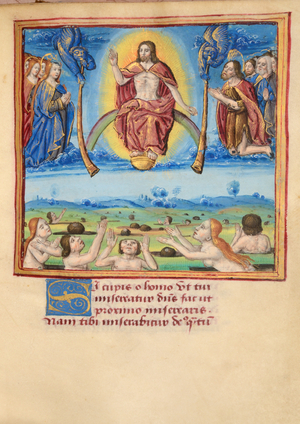 Si cupis o homo Ut tui
misereatur dñs fac ut
proximo miserearis.
Nam tibi miserebitur de